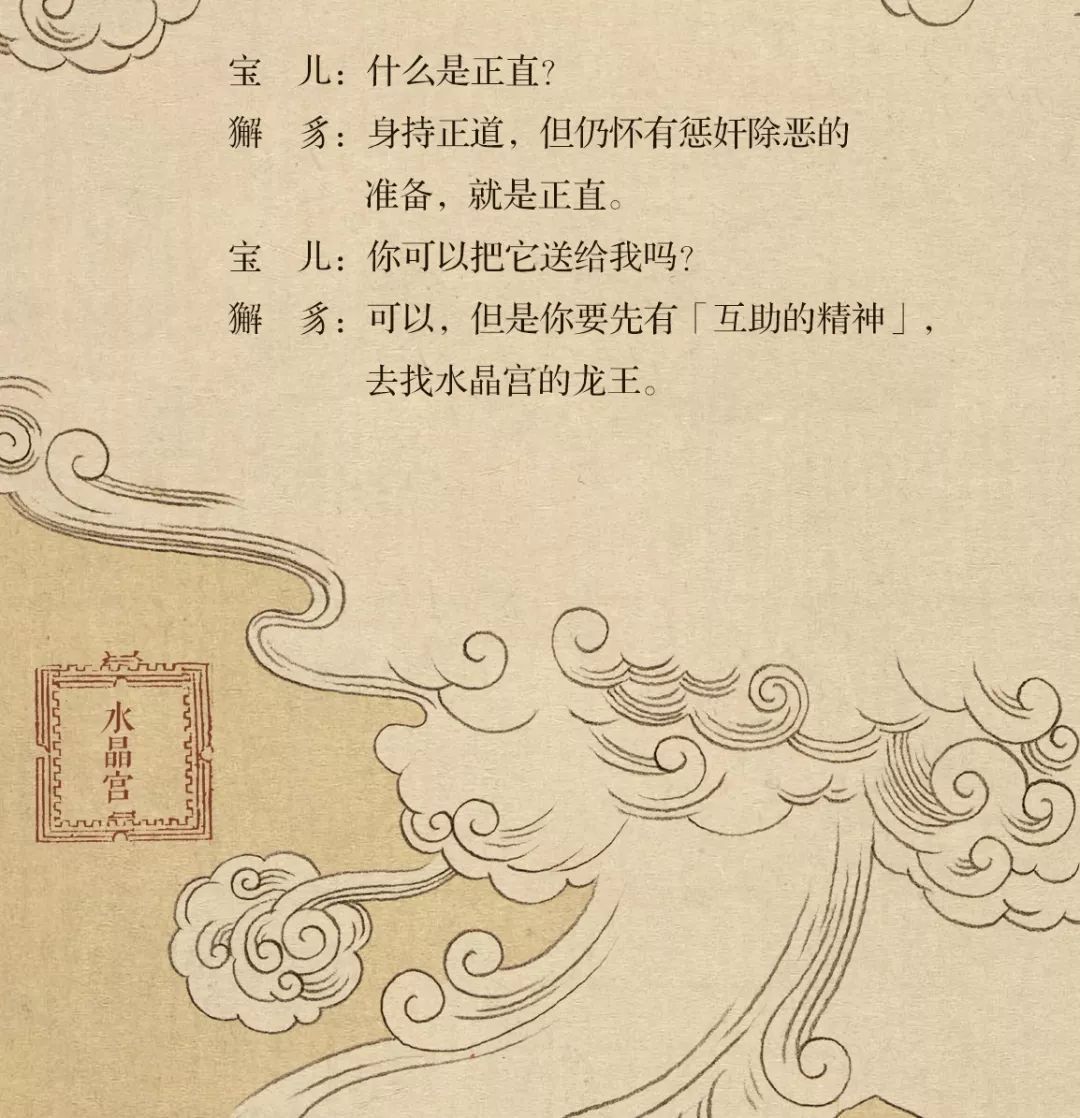 宝　儿：什么是正直？
獬　豸：身持正道，但仍怀有惩奸除恶的
准备，就是正直。
宝　儿：你可以把它送给我吗？
獬　豸：可以，但是你要先有「互助的精神」，
去找水晶宫的龙王。
水晶宫